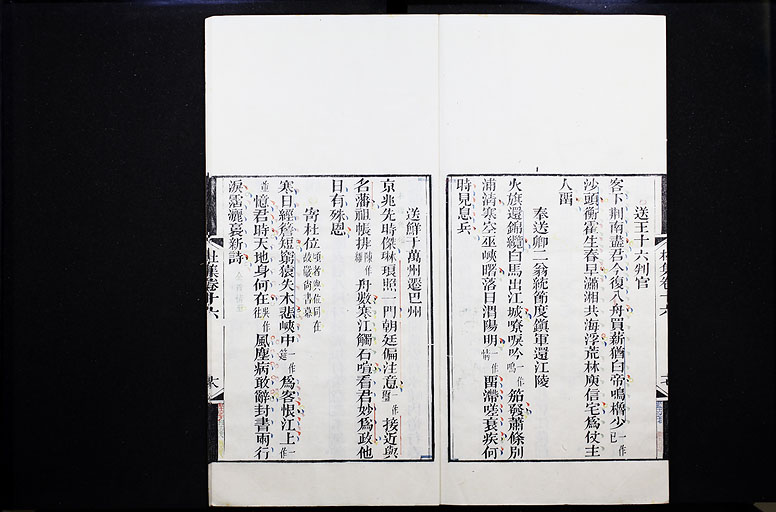 送王十六判官
客下荊南盡君今復入舟買薪猶白帝鳴櫓少一作已
沙頭衡霍生春早瀟湘共海浮荒林庾信宅為仗主
人留
奉送卿二翁統節度鎮軍還江陵
火旗還錦纜白馬出江城嘹唳吟一作鳴笳發蕭條別
浦清寒空巫峽曙落日渭陽明一作情留滯嗟衰疾何
時見息兵
送鮮于萬州遷巴州
京兆先時傑琳琅照一門朝廷偏注意一作接近與
名藩祖帳排陳作舟數寒江觸石喧看君妙為政他
日有殊恩
寄杜位頃者與位同在故嚴尚書幕
寒日經簷短窮猿失木悲峽中一作為客恨江上一作
憶君時天地身何在風塵病敢辭封書兩行
淚霑灑裛新詩
杜集卷十六